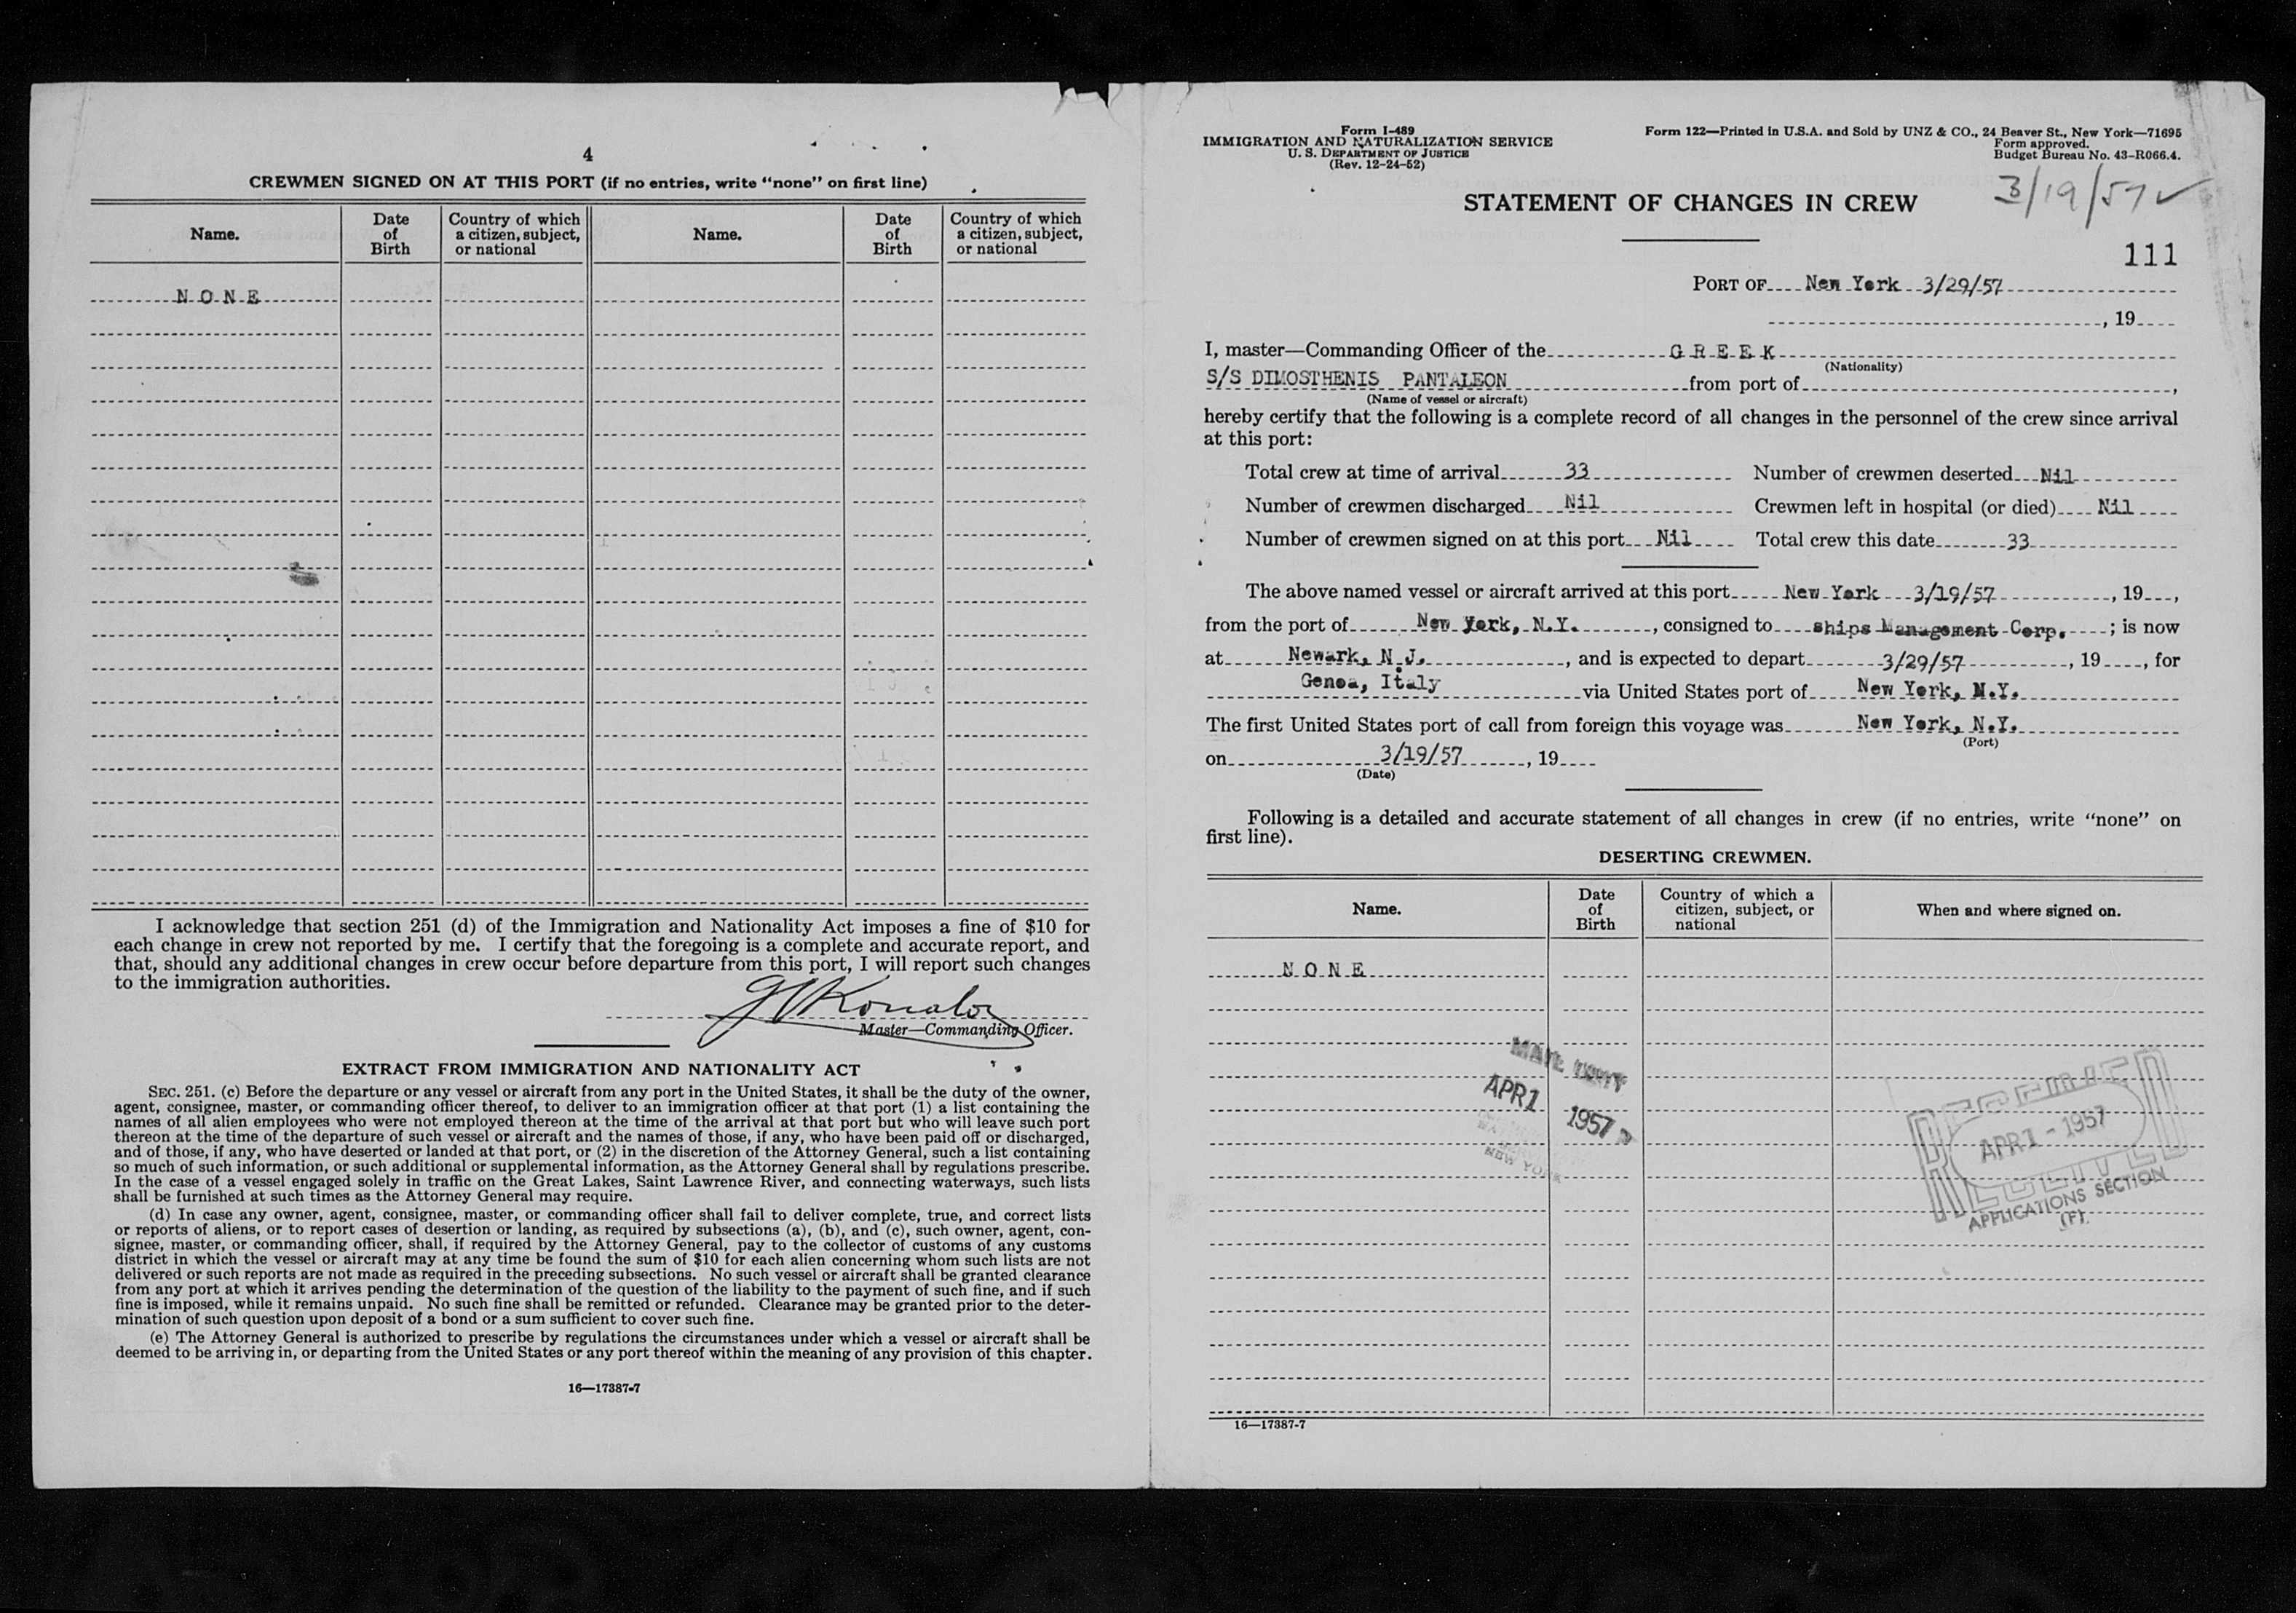 4
CREWMEN SIGNED ON AT THIS PORT (if no entries, write “none” on first line)
Name. Date of Birth Country of which a citizen, subject, or national Name. Date of Birth Country of which a citizen, subject, or national
N O N E
I acknowledge that section 251 (d) of the Immigration and Nationality Act imposes a fine of $10 for
each change in crew not reported by me. I certify that the foregoing is a complete and accurate report, and
that, should any additional changes in crew occur before departure from this port, I will report such changes
to the immigration authorities.
Master—Commanding Officer.
EXTRACT FROM IMMIGRATION AND NATIONALITY ACT
SEC. 251. (c) Before the departure or any vessel or aircraft from any port in the United States, it shall be the duty of the owner,
agent, consignee, master, or commanding officer thereof, to deliver to an immigration officer at that port (1) a list containing the
names of all alien employees who were not employed thereon at the time of the arrival at that port but who will leave such port
thereon at the time of the departure of such vessel or aircraft and the names of those, if any, who have been paid off or discharged,
and of those, if any, who have deserted or landed at that port, or (2) in the discretion of the Attorney General, such a list containing
so much of such information, or such additional or supplemental information, as the Attorney General shall by regulations prescribe.
In the case of a vessel engaged solely in traffic on the Great Lakes, Saint Lawrence River, and connecting waterways, such lists
shall be furnished at such times as the Attorney General may require.
(d) In case any owner, agent, consignee, master, or commanding officer shall fail to deliver complete, true, and correct lists
or reports of aliens, or to report cases of desertion or landing, as required by subsections (a), (b), and (c), such owner, agent, con-
signee, master, or commanding officer, shall, if required by the Attorney General, pay to the collector of customs of any customs
district in which the vessel or aircraft may at any time be found the sum of $10 for each alien concerning whom such lists are not
delivered or such reports are not made as required in the preceding subsections. No such vessel or aircraft shall be granted clearance
from any port at which it arrives pending the determination of the question of the liability to the payment of such fine, and if such
fine is imposed, while it remains unpaid. No such fine shall be remitted or refunded. Clearance may be granted prior to the deter-
mination of such question upon deposit of a bond or a sum sufficient to cover such fine.
(e) The Attorney General is authorized to prescribe by regulations the circumstances under which a vessel or aircraft shall be
deemed to be arriving in, or departing from the United States or any port thereof within the meaning of any provision of this chapter.
16—17387-7
Form I-489
IMMIGRATION AND NATURALIZATION SERVICE
U. S. DEPARTMENT OF JUSTICE
(Rev. 12-24-52)
Form 122—Printed in U.S.A. and Sold by UNZ & CO., 24 Beaver St., New York—71695
Form approved.
Budget Bureau No. 43-R066.4.
3/19/57 ✓
STATEMENT OF CHANGES IN CREW
111
PORT OF New York 3/29/57
, 19
I, master—Commanding Officer of the G R E E K
(Nationality)
S/S DIMOSTHENIS PANTALEON from port of ,
(Name of vessel or aircraft)
hereby certify that the following is a complete record of all changes in the personnel of the crew since arrival
at this port:
Total crew at time of arrival 33 Number of crewmen deserted Nil
Number of crewmen discharged Nil Crewmen left in hospital (or died) Nil
Number of crewmen signed on at this port Nil Total crew this date 33
The above named vessel or aircraft arrived at this port New York 3/19/57 , 19 ,
from the port of New York, N.Y. , consigned to ships Management Corp. ; is now
at Newark, N.J. , and is expected to depart 3/29/57 , 19 , for
Genoa, Italy via United States port of New York, N.Y.
The first United States port of call from foreign this voyage was New York, N.Y.
(Port)
on 3/19/57 , 19
(Date)
Following is a detailed and accurate statement of all changes in crew (if no entries, write “none” on
first line).
DESERTING CREWMEN.
Name. Date of Birth Country of which a citizen, subject, or national When and where signed on.
N O N E
APR 1 1957
NEW YORK
RECEIVED
APR 1 - 1957
APPLICATIONS SECTION
(F)
16—17387-7